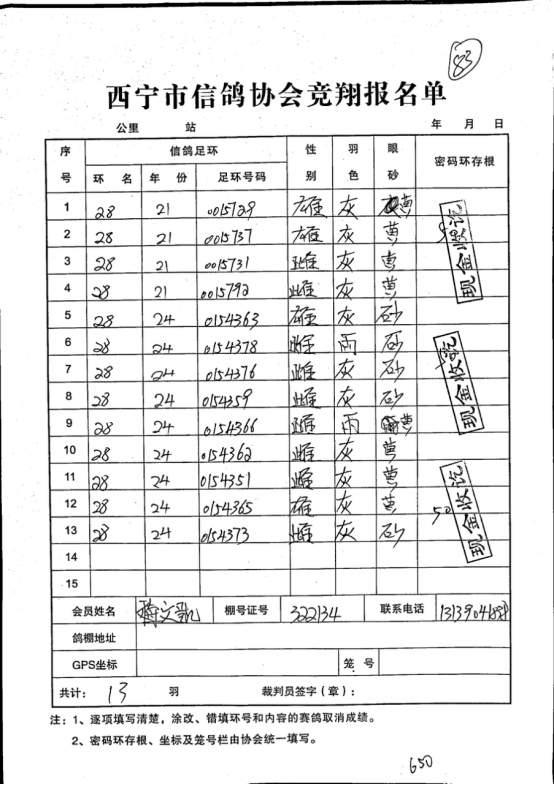 83
西宁市信鸽协会竞翔报名单
公里 站 年 月 日
序号 信鸽足环 性别 羽色 眼砂 密码环存根
环 名 年 份 足环号码
1 28 21 0015729 雄 灰 黄
2 28 21 0015737 雄 灰 黄
3 28 21 0015731 雌 灰 黄
4 28 21 0015792 雌 灰 黄
现金收讫
5 28 24 0154363 雄 灰 砂
6 28 24 0154378 雌 雨 砂
7 28 24 0154376 雌 灰 砂
8 28 24 0154359 雌 灰 砂
9 28 24 0154366 雌 雨 黄
现金收讫
10 28 24 0154362 雌 灰 黄
11 28 24 0154351 雌 灰 黄
12 28 24 0154365 雄 灰 黄
13 28 24 0154373 雌 灰 砂
50 现金收讫
14
15
会员姓名 文凯 棚号证号 322134 联系电话
鸽棚地址
GPS坐标 笼 号
共计: 13 羽 裁判员签字(章):
注:1、逐项填写清楚,涂改、错填环号和内容的赛鸽取消成绩。
2、密码环存根、坐标及笼号栏由协会统一填写。
650